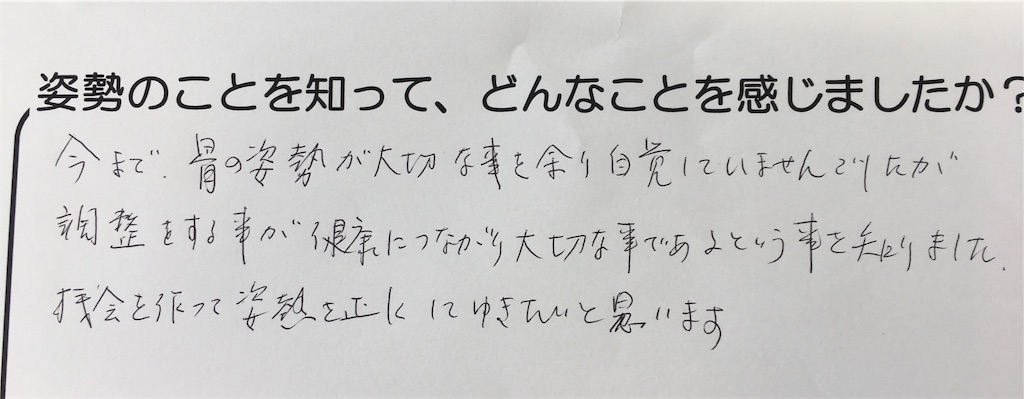 姿勢のことを知って、どんなことを感じましたか?
今まで、骨の姿勢が大切な事を余り自覚していませんでしたが
調整をする事が健康につながり大切な事であるという事を知りました.
機会を作って姿勢を正してゆきたいと思います